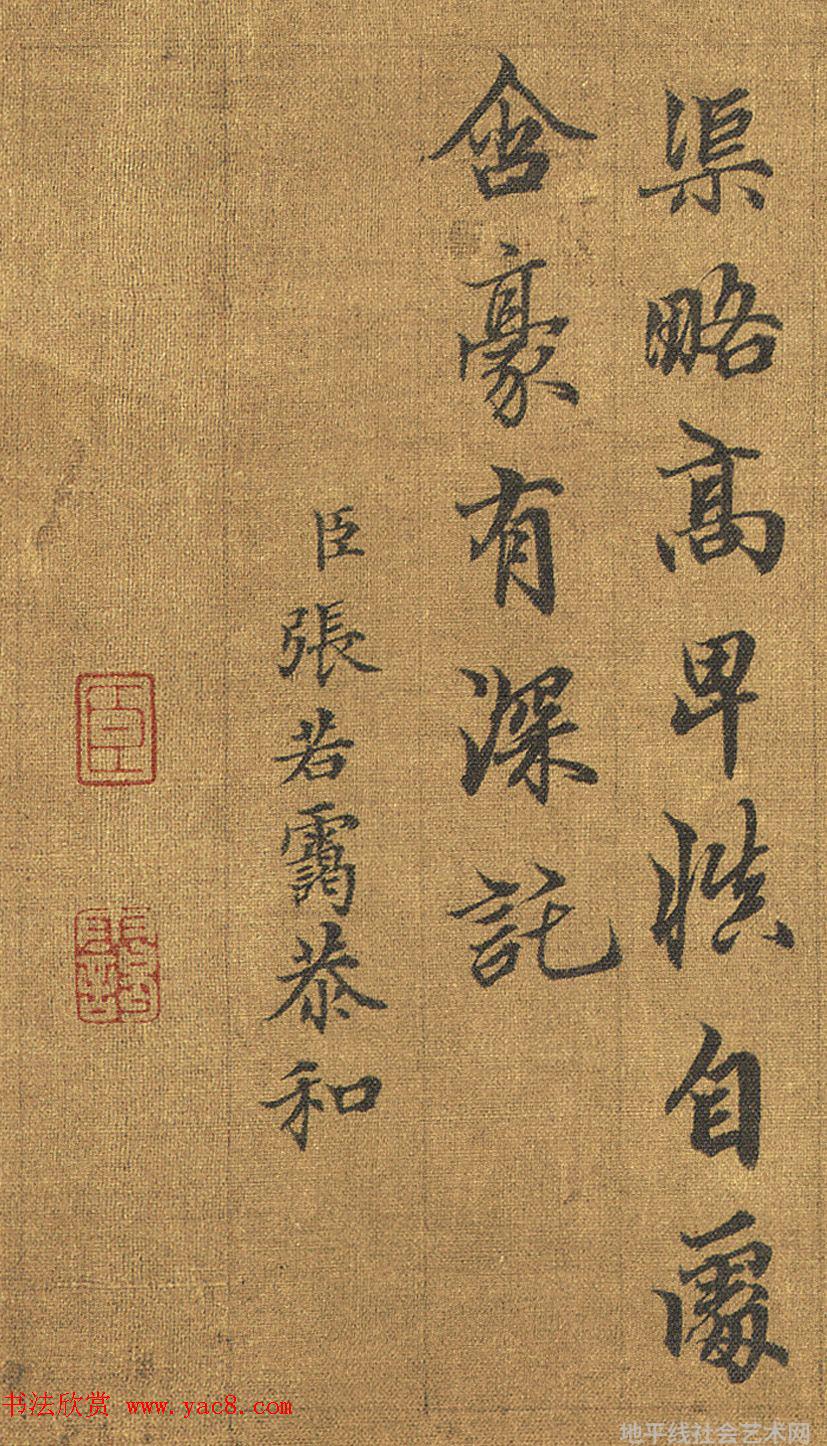 渠略高卑慎自處
含豪有深託
臣張若靄恭和
书法欣赏 www.yac8.com
地平线社会艺术网